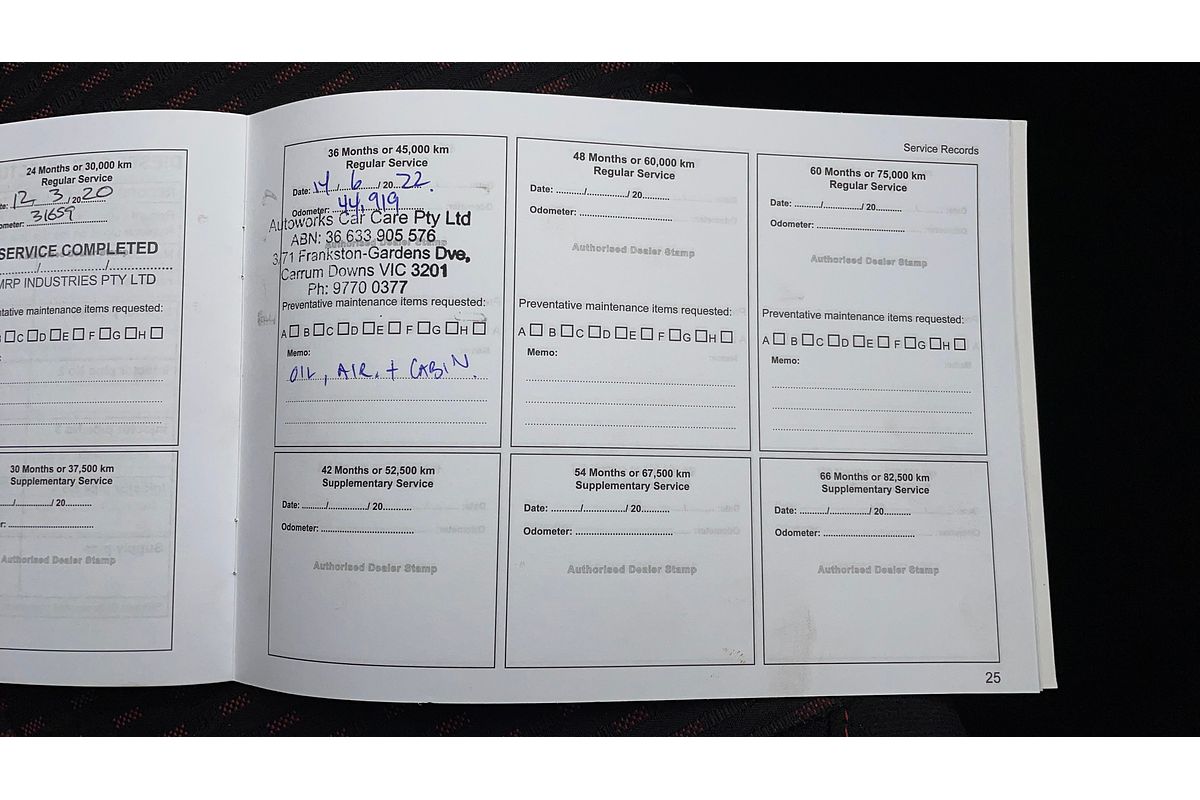 24 Months or 30,000 km
Regular Service
12 3 / 20 20
31659
SERVICE COMPLETED
MRP INDUSTRIES PTY LTD
maintenance items requested:
C D E F G H
30 Months or 37,500 km
Supplementary Service
/ 20
Authorised Dealer Stamp
Service Records
36 Months or 45,000 km
Regular Service
Date: 14 / 6 / 20 22.
Odometer: 44,919
Autoworks Car Care Pty Ltd
ABN: 36 633 905 576
3/71 Frankston-Gardens Dve,
Carrum Downs VIC 3201
Ph: 9770 0377
Preventative maintenance items requested:
A B C D E F G H
Memo:
OIL, AIR, + CABIN.
48 Months or 60,000 km
Regular Service
Date: ........../................/ 20..........
Odometer: ..............................
Authorised Dealer Stamp
Preventative maintenance items requested:
A B C D E F G H
Memo:
60 Months or 75,000 km
Regular Service
Date: ........../................/ 20..........
Odometer: ..............................
Authorised Dealer Stamp
Preventative maintenance items requested:
A B C D E F G H
Memo:
42 Months or 52,500 km
Supplementary Service
Date: ........../................/ 20..........
Odometer: ..............................
Authorised Dealer Stamp
54 Months or 67,500 km
Supplementary Service
Date: ........../................/ 20..........
Odometer: ..............................
Authorised Dealer Stamp
66 Months or 82,500 km
Supplementary Service
Date: ........../................/ 20..........
Odometer: ..............................
Authorised Dealer Stamp
25